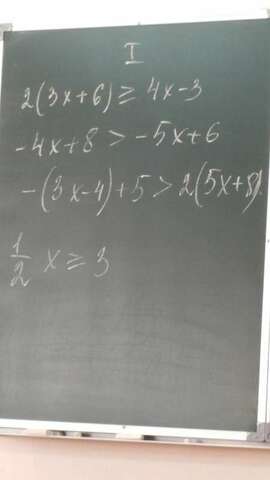 I
2(3x+6) ≥ 4x-3
-4x+8 > -5x+6
-(3x-4)+5 > 2(5x+8)
1/2 x ≥ 3